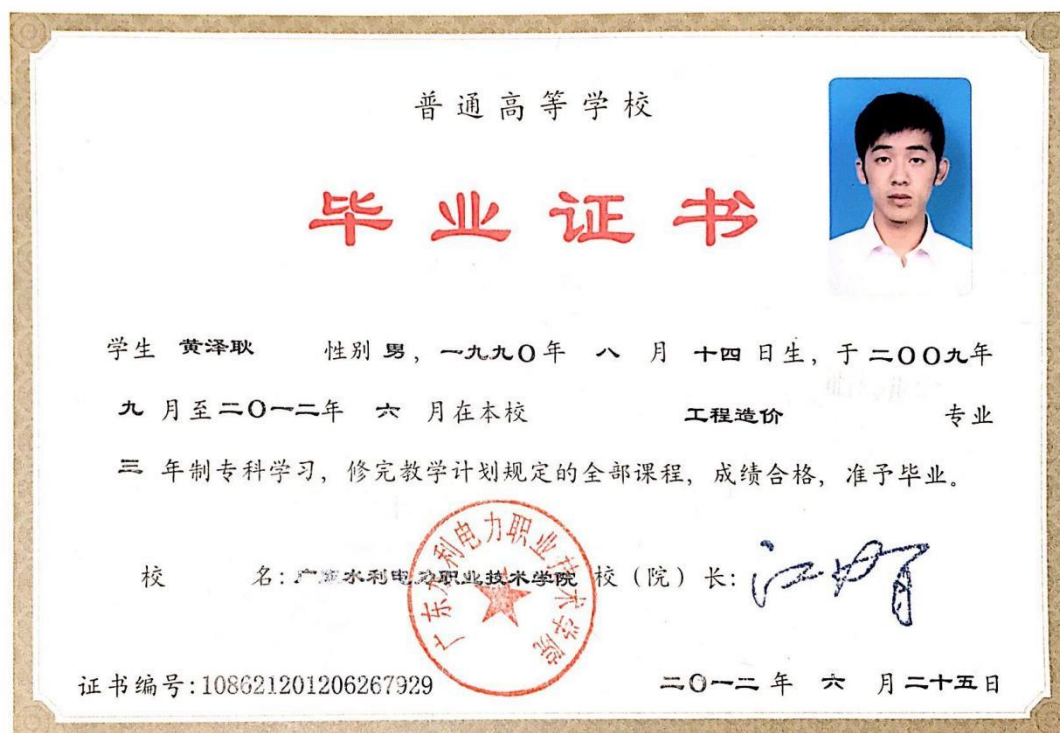 普通高等学校
毕业证书
学生 黄泽耿 性别 男，一九九〇年 八 月 十四 日生，于二〇〇九年
九 月至二〇一二年 六 月在本校 工程造价 专业
三 年制专科学习，修完教学计划规定的全部课程，成绩合格，准予毕业。
校 名：广东水利电力职业技术学院 校（院）长：
广东水利电力职业技术学院
证书编号：108621201206267929 二〇一二 年 六 月二十五日